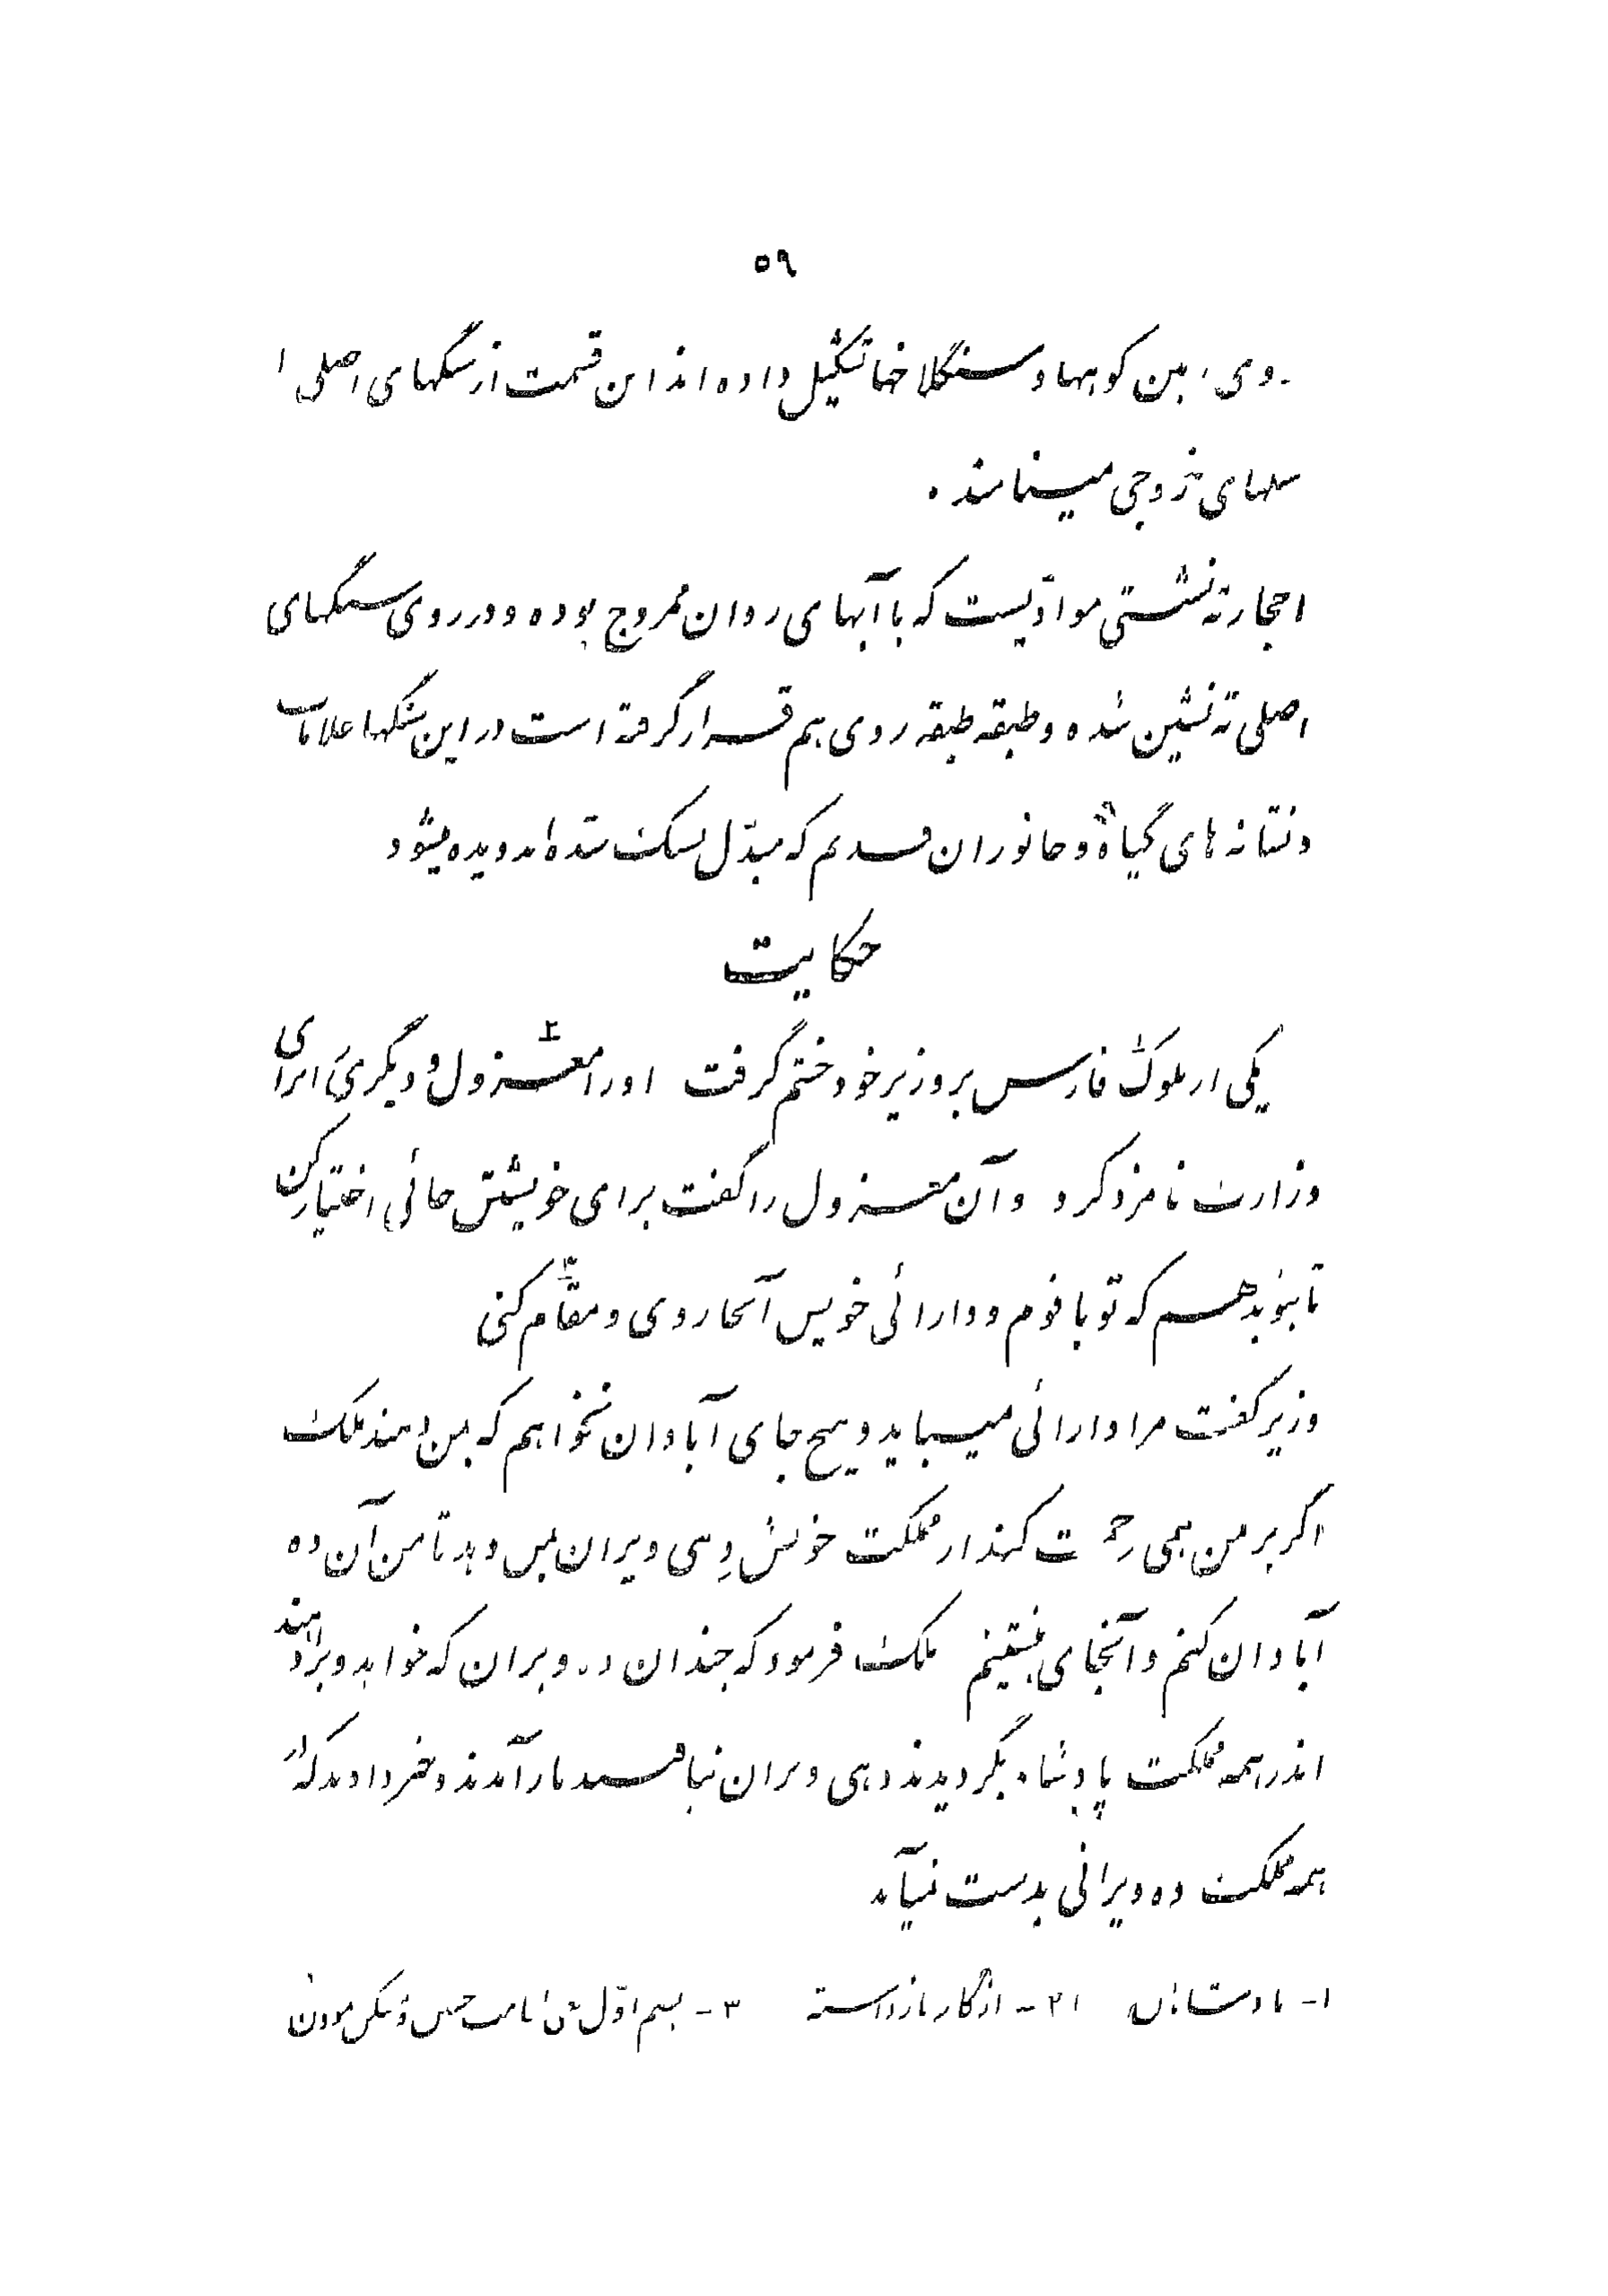 ٥٩
روی زمین کوهها و سنگلاخها تشکیل داده اند این قسمت از سنگهای اصلی را
سنگهای خروجی مینامند .
احجار ته نشستی موادّیست که با آبهای روان ممزوج بوده و در روی سنگهای
اصلی ته نشین شده و طبقه طبقه روی هم قرار گرفته است در این سنگها علامات
و نشانه های گیاه و جانوران قدیم که مبدّل بسنگ شده اند دیده میشود
حکایت
یکی از ملوک فارس بر وزیر خود خشم گرفت او را معزول و دیگری را برای
وزارت نامزد کرد و آن معزول را گفت برای خویشتن جائی اختیار کن
تا بتو بدهم که تو با قوم و دارائی خویش آنجا روی و مقام کنی
وزیر گفت مرا دارائی میباید و هیچ جای آبادان نخواهم که بمن دهند ملک
اگر بر من همی رحمت کند از مملکت خویش دهی ویران بمن دهد تا من آن ده
آبادان کنم و آنجای بنشینم ملک فرمود که چندان ده ویران که خواهد ویرا دهند
اندر همه مملکت پادشاه بگردیدند دهی ویران نیافتند باز آمدند و خبر دادند که در
همه مملکت ده ویرانی بدست نمیآید
١- پادشاهان ٢- از کار بازداشته ٣- بضم اوّل